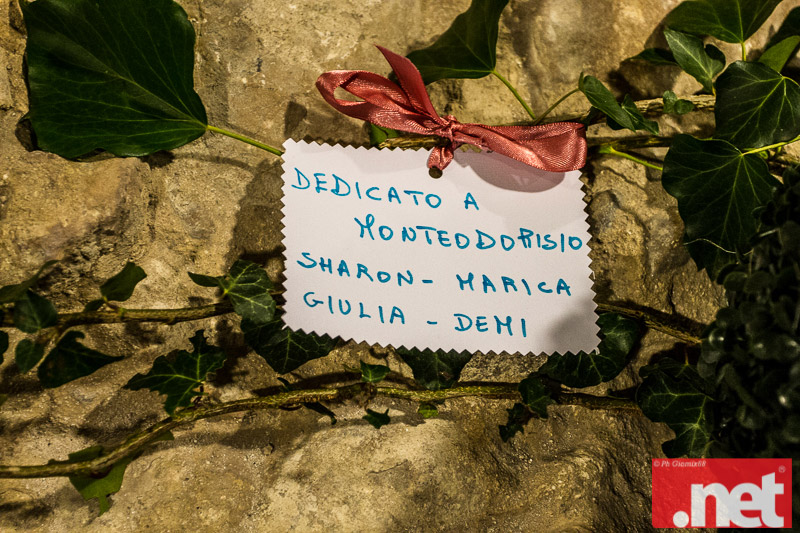 DEDICATO A
MONTEODORISIO
SHARON - MARICA
GIULIA - DEMI
© Ph Giamix88
.net®